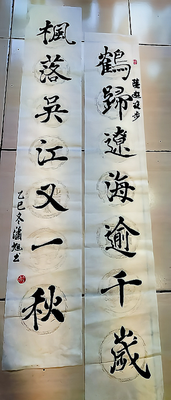 鶴歸遼海逾千歲
楓落吳江又一秋
乙巳冬